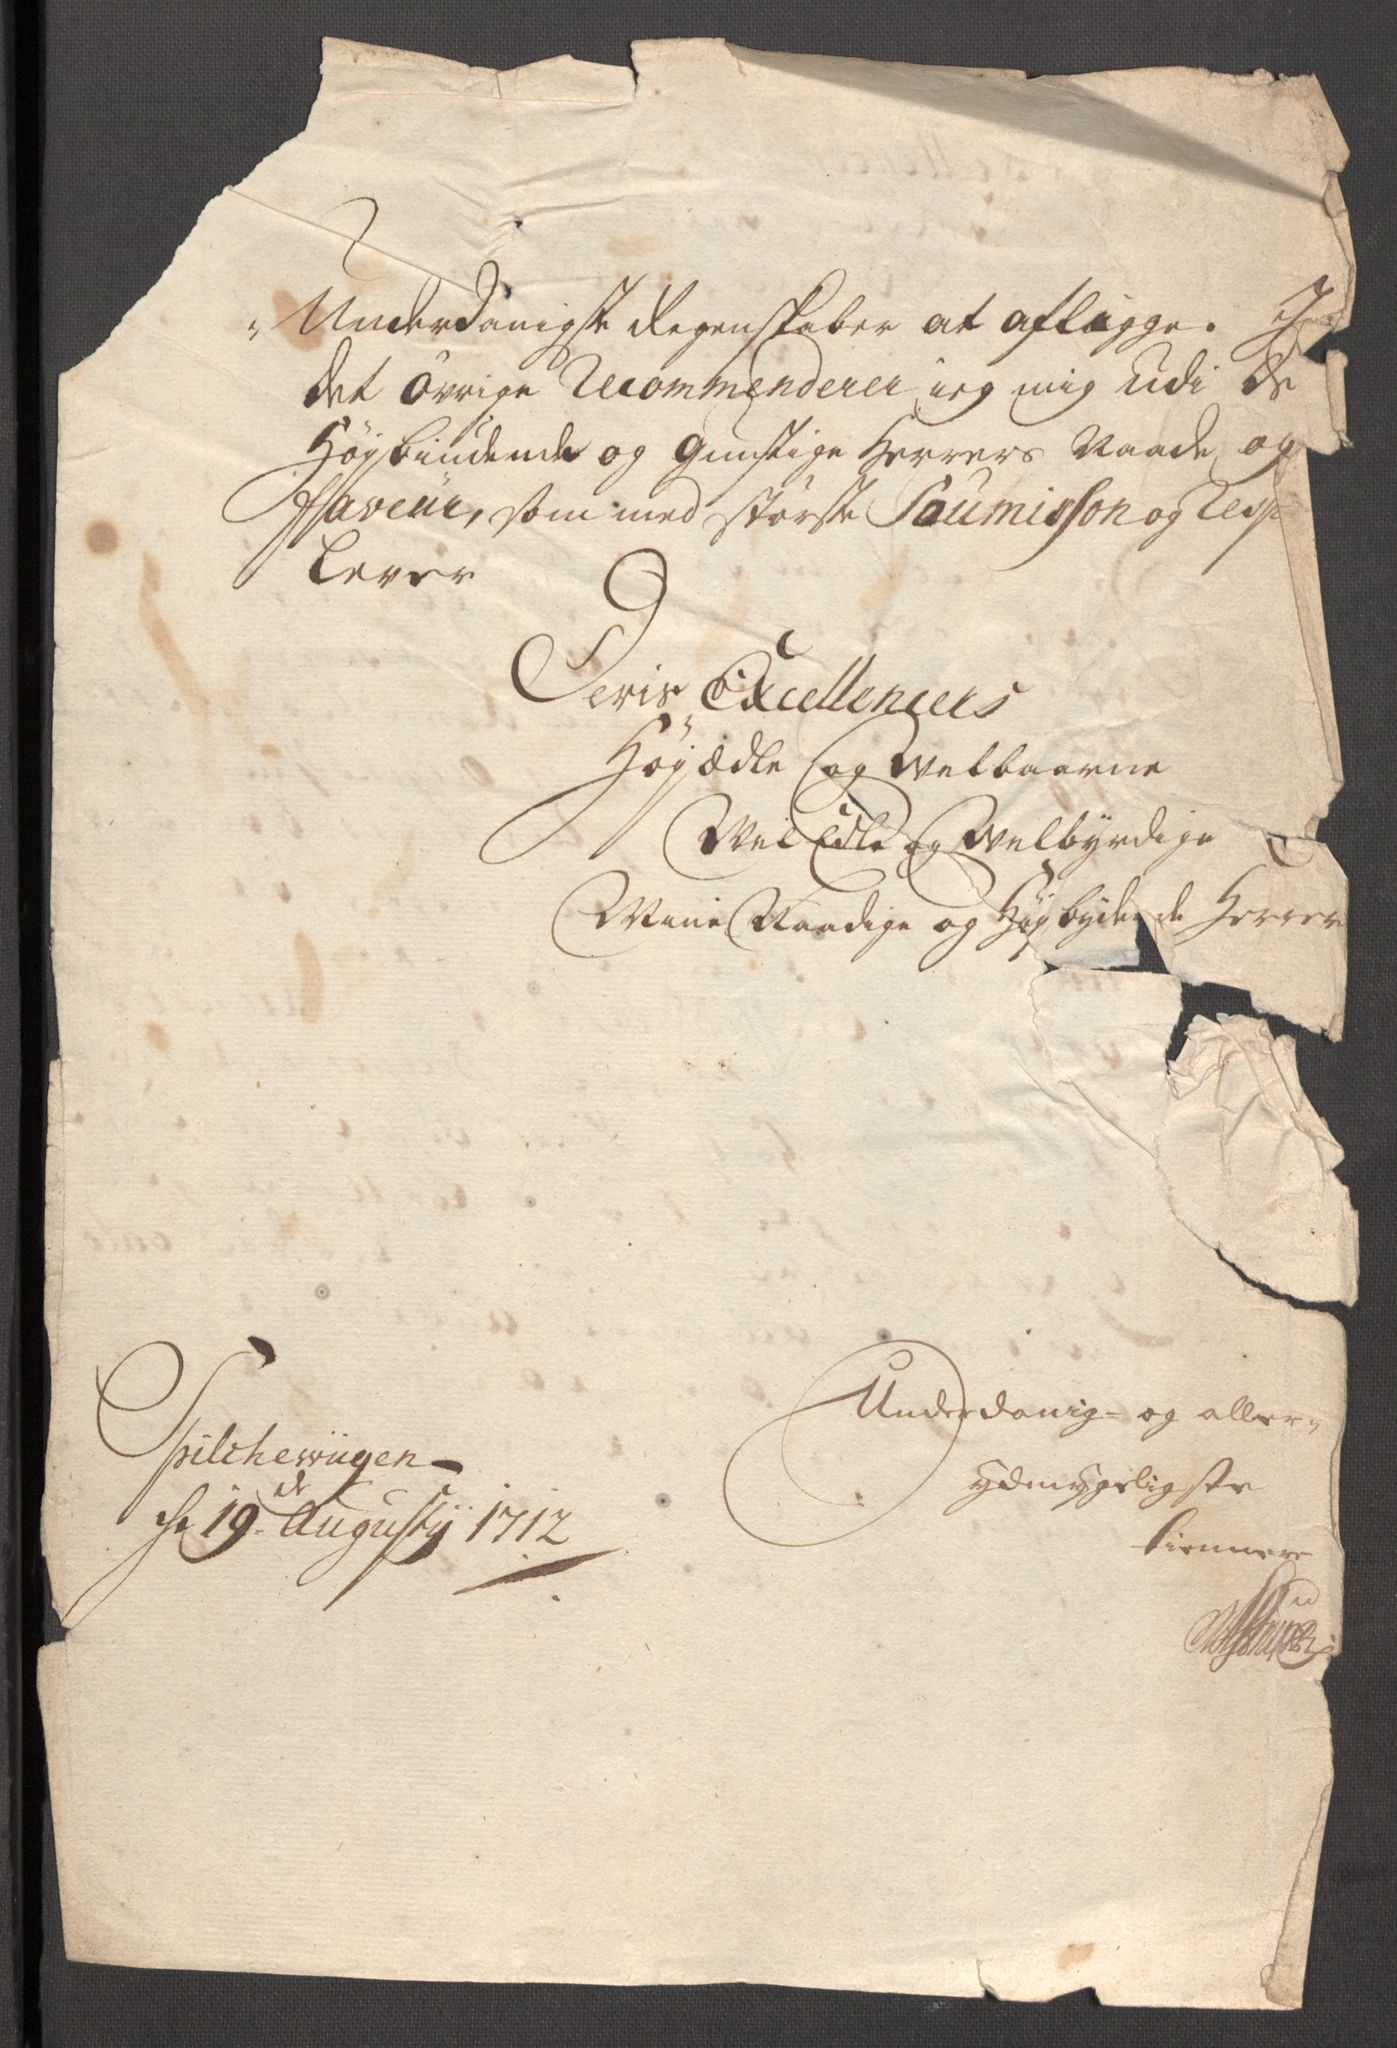 Underdanigste Regenskaber at aflegge. J
det övrige Recommenderer ieg mig udi De
Høybiudende og gunstige Herrers Naade og
Faveur, som med største Soumisson og Resp
lever
Deris Excellencers
Høyædle og Welbaarne
Wel Edle og Welbÿrdige
Mine Naadige og Høybydende Herrer
Underdanig- og aller-
ydmygeligste
tienner
Spilchewiigen
de 19de Augustÿ 1712